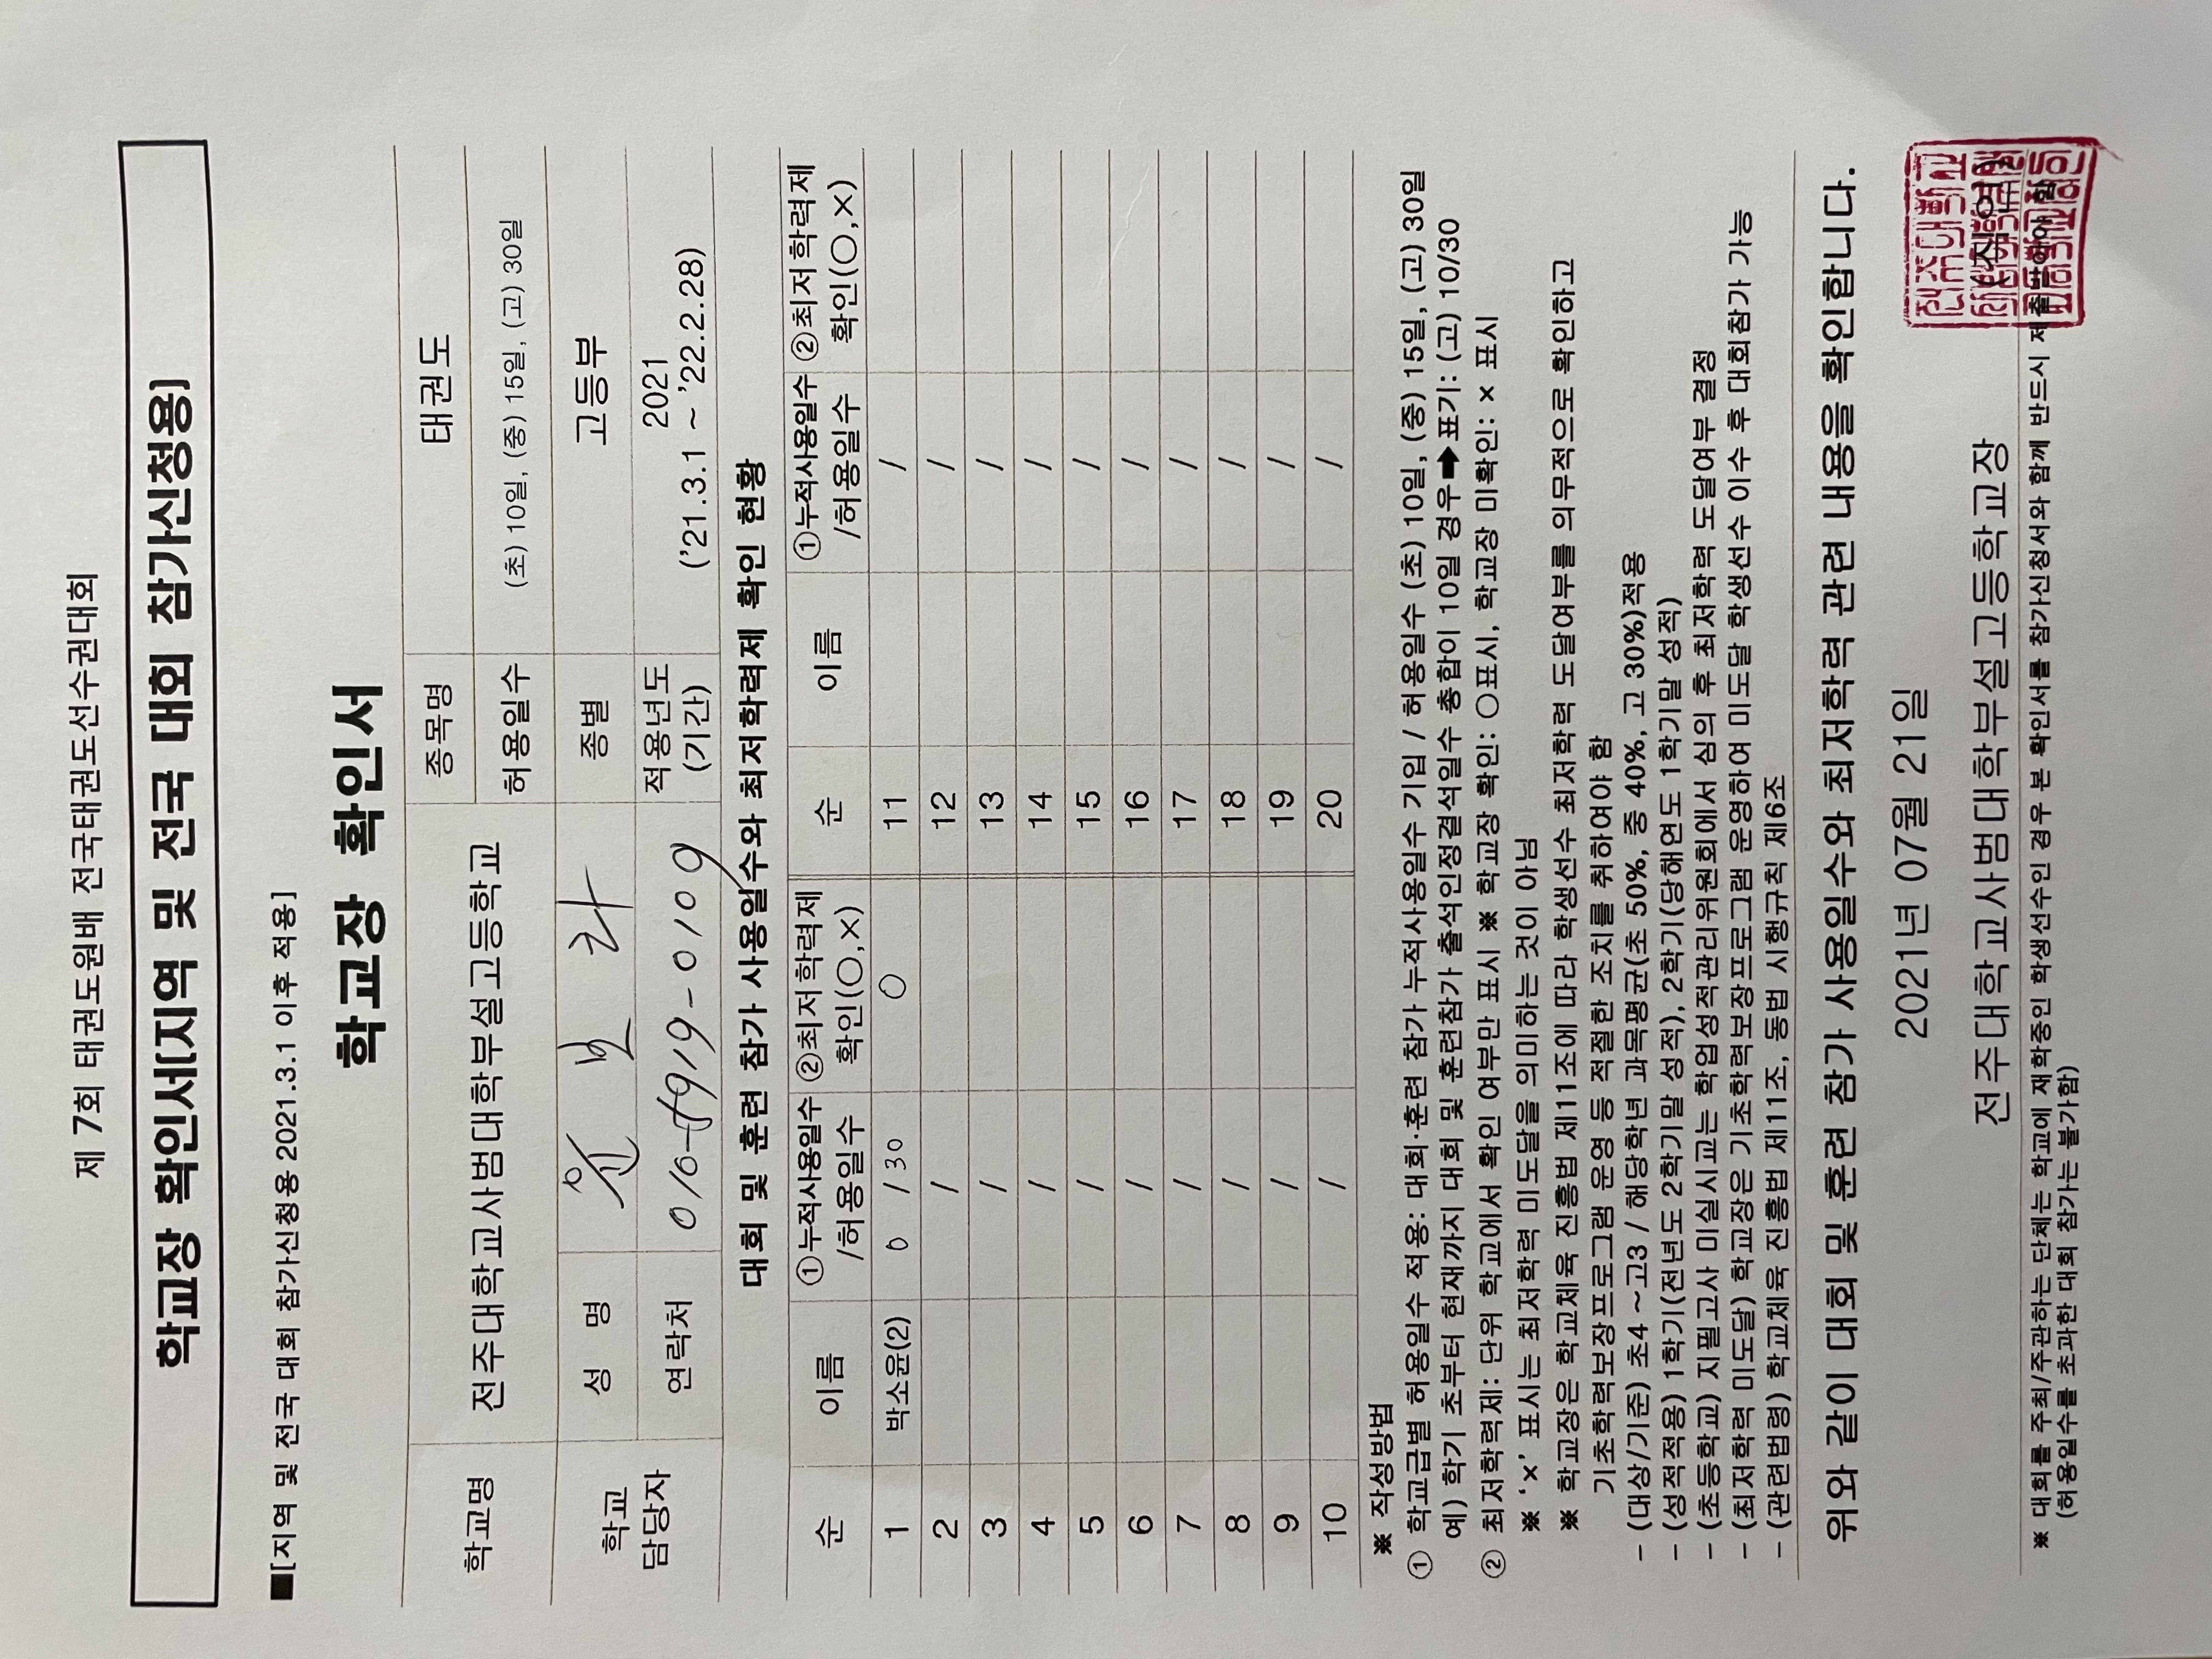 제 7회 태권도원배 전국태권도선수권대회
학교장 확인서[지역 및 전국 대회 참가신청용]
■[지역 및 전국 대회 참가신청용 2021.3.1 이후 적용]
학교장 확인서
학교명 전주대학교사범대학부설고등학교 종목명 태권도
허용일수 (초) 10일, (중) 15일, (고) 30일
학교 담당자 성 명 윤 보 라 종별 고등부
연락처 적용년도 (기간) 2021 ('21.3.1 ~ '22.2.28)
대회 및 훈련 참가 사용일수와 최저학력제 확인 현황
순 이름 ①누적사용일수 /허용일수 ②최저학력제 확인(○,×) 순 이름 ①누적사용일수 /허용일수 ②최저학력제 확인(○,×)
1 박소윤(2) 0 / 30 ○ 11 /
2 / 12 /
3 / 13 /
4 / 14 /
5 / 15 /
6 / 16 /
7 / 17 /
8 / 18 /
9 / 19 /
10 / 20 /
※ 작성방법
① 학교급별 허용일수 적용: 대회·훈련 참가 누적사용일수 기입 / 허용일수 (초) 10일, (중) 15일, (고) 30일
예) 학기 초부터 현재까지 대회 및 훈련참가 출석인정결석일수 총합이 10일 경우➡표기: (고) 10/30
② 최저학력제: 단위 학교에서 확인 여부만 표시 ※ 학교장 확인: ○표시, 학교장 미확인: × 표시
※ '×' 표시는 최저학력 미도달을 의미하는 것이 아님
※ 학교장은 학교체육 진흥법 제11조에 따라 학생선수 최저학력 도달여부를 의무적으로 확인하고
기초학력보장프로그램 운영 등 적절한 조치를 취하여야 함
- (대상/기준) 초4 ~고3 / 해당학년 과목평균(초 50%, 중 40%, 고 30%)적용
- (성적적용) 1학기(전년도 2학기말 성적), 2학기(당해연도 1학기말 성적)
- (초등학교) 지필고사 미실시교는 학업성적관리위원회에서 심의 후 최저학력 도달여부 결정
- (최저학력 미도달) 학교장은 기초학력보장프로그램 운영하여 미도달 학생선수 이수 후 대회참가 가능
- (관련법령) 학교체육 진흥법 제11조, 동법 시행규칙 제6조
위와 같이 대회 및 훈련 참가 사용일수와 최저학력 관련 내용을 확인합니다.
2021년 07월 21일
전주대학교사범대학부설고등학교장 (직인)
※ 대회를 주최/주관하는 단체는 학교에 재학중인 학생선수인 경우 본 확인서를 참가신청서와 함께 반드시 제출받아야 함
(허용일수를 초과한 대회 참가는 불가함)